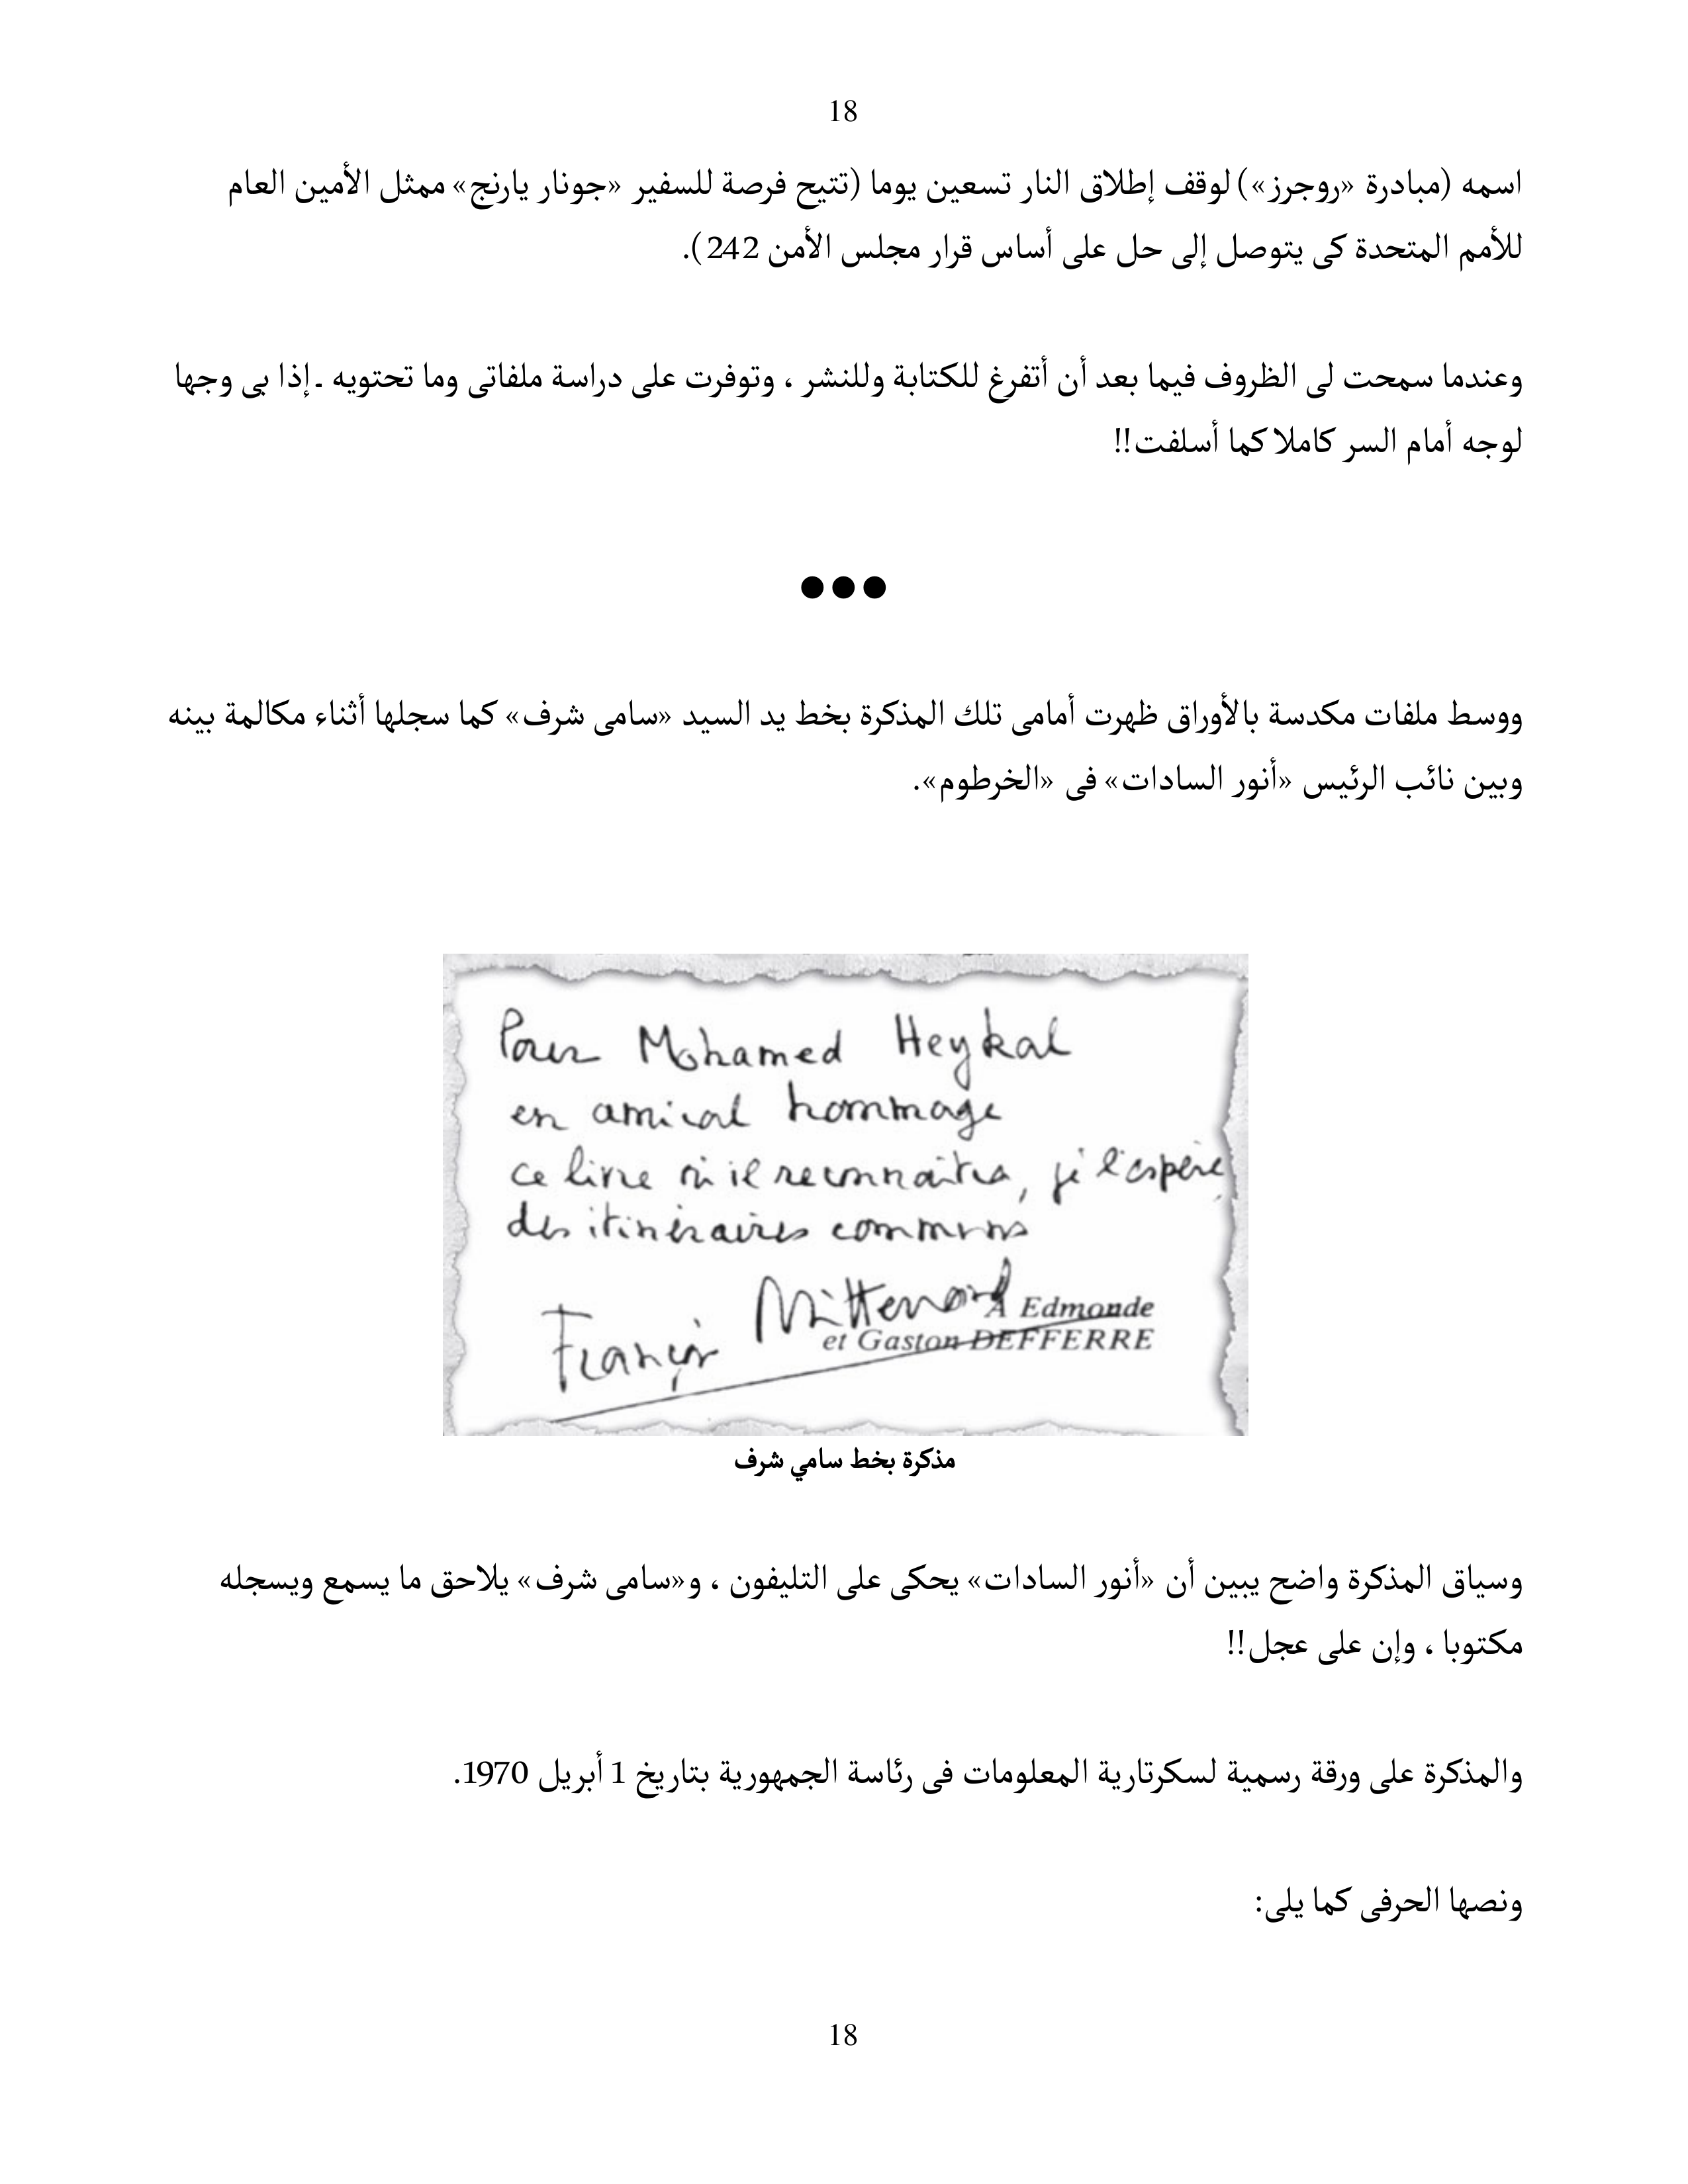 18
اسمه (مبادرة «روجرز») لوقف إطلاق النار تسعين يوما (تتيح فرصة للسفير «جونار يارنج» ممثل الأمين العام
للأمم المتحدة كى يتوصل إلى حل على أساس قرار مجلس الأمن 242).
وعندما سمحت لى الظروف فيما بعد أن أتفرغ للكتابة وللنشر ، وتوفرت على دراسة ملفاتى وما تحتويه ـ إذا بى وجها
لوجه أمام السر كاملا كما أسلفت!!
●●●
ووسط ملفات مكدسة بالأوراق ظهرت أمامى تلك المذكرة بخط يد السيد «سامى شرف» كما سجلها أثناء مكالمة بينه
وبين نائب الرئيس «أنور السادات» فى «الخرطوم».
Pour Mohamed Heykal
en amical hommage
ce livre où il reconnaîtra, je l'espère,
des itinéraires communs
François Mitterrand
A Edmonde
et Gaston DEFFERRE
مذكرة بخط سامي شرف
وسياق المذكرة واضح يبين أن «أنور السادات» يحكى على التليفون ، و«سامى شرف» يلاحق ما يسمع ويسجله
مكتوبا ، وإن على عجل!!
والمذكرة على ورقة رسمية لسكرتارية المعلومات فى رئاسة الجمهورية بتاريخ 1 أبريل 1970.
ونصها الحرفى كما يلى:
18